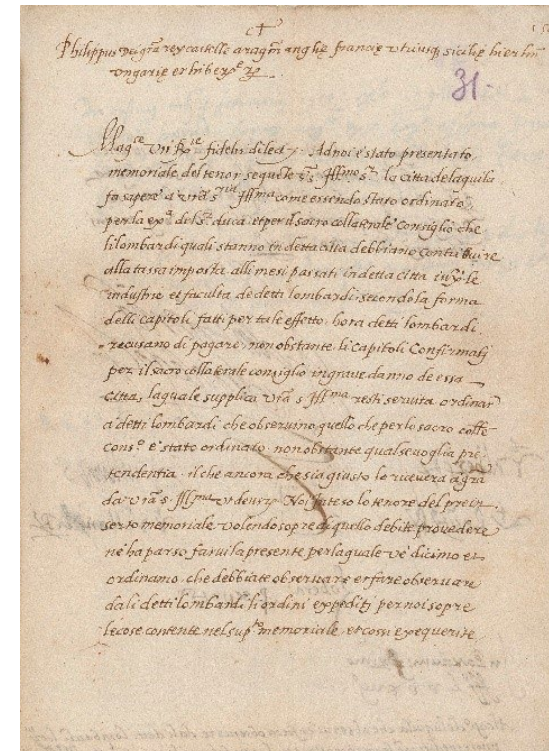 Philippus dei gra rex castelle aragon anglie francie utriusq sicilie hierlm
ungarie et hiber
31.
Mag.ce fidelis dilect. Ad noi è stato presentato
memoriale del tenor sequente Ill.mo S.r la citta de laquila
fa sapere a v.ra s.ria Ill.ma come essendo stato ordinato
per la ex.a del s.r duca et per il sacro collaterale Consiglio che
li lombardi quali stanno in detta citta debbiano contribuire
alla tassa imposta alli mesi passati in detta citta le
industrie et faculta de detti lombardi secondo la forma
delli Capitoli fatti per tale effetto. hora detti lombardi
recusano di pagare non obstante li Capitoli Confirmati
per il sacro collaterale consiglio in grave danno de essa
Citta, la quale supplica v.ra s. Ill.ma resti servita ordinar
a detti lombardi che observino quello che per lo sacro coll.e
cons.o è stato ordinato non obstante qual se voglia pre
tendentia. il che ancora che sia giusto lo ricevera a gra
da v.ra s. Ill.ma ut deus. Noi inteso lo tenore del prein
serto memoriale volendo sopre di quello debite provedere
ne ha parso farvi la presente per la quale ve dicimo et
ordinamo che debbiate observare et fare observare
da li detti lombardi li ordini expediti per noi sopre
le cose contente nel sup.to memoriale et cossi exequerite